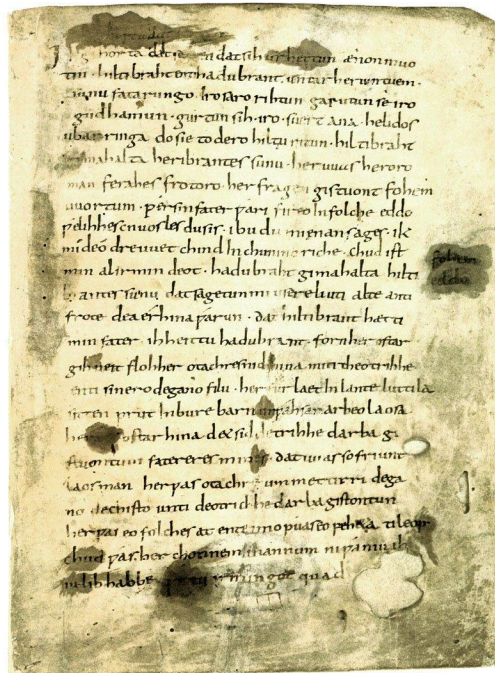 gihorta dat dat sih urhettun ænon muo
tin · hiltibraht enti hadubrant · untar heriun tuem ·
sunu fatarungo · iro saro rihtun garutun se iro
gudhamun · gurtun sih · iro · suert ana · helidos
ubar ringa do sie to dero hiltu ritun · hiltibraht
gimahalta heribrantes sunu · her uuas heroro
man ferahes frotoro · her fragen gistuont fohem
uuortum · ƿer sin fater ƿari fireo In folche eddo
ƿelihhes cnuosles du sis · ibu du mi enan sages · ik
mi deo dre uuet chind In chuninc riche · chud ist
min al irmin deot · hadubraht gimahalta hilti
brantes sunu dat sagetun mi usere liuti alte anti
frote dea erhina ƿarun · dat hiltibrant hætti
min fater · ih heittu hadubrant · forn her ostar
gihueit floh her otachres nid hina miti theotrihhe
enti sinero degano filu · her fur laet In lante luttila
sitten prut In bure barn unƿahsan arbeo laosa
ostar hina det sid detrihhe darba gi
stuontum fatereres mines · dat uuas so friunt
laos man her ƿas otachre ummettirri dega
no dechisto unti deotrichhe darba gistontun
her ƿas eo folches at ente imo ƿuas eo feheta ti leop
chud ƿas her chonnem mannum ni ƿaniu ih
iu lib habbe irmingot quad